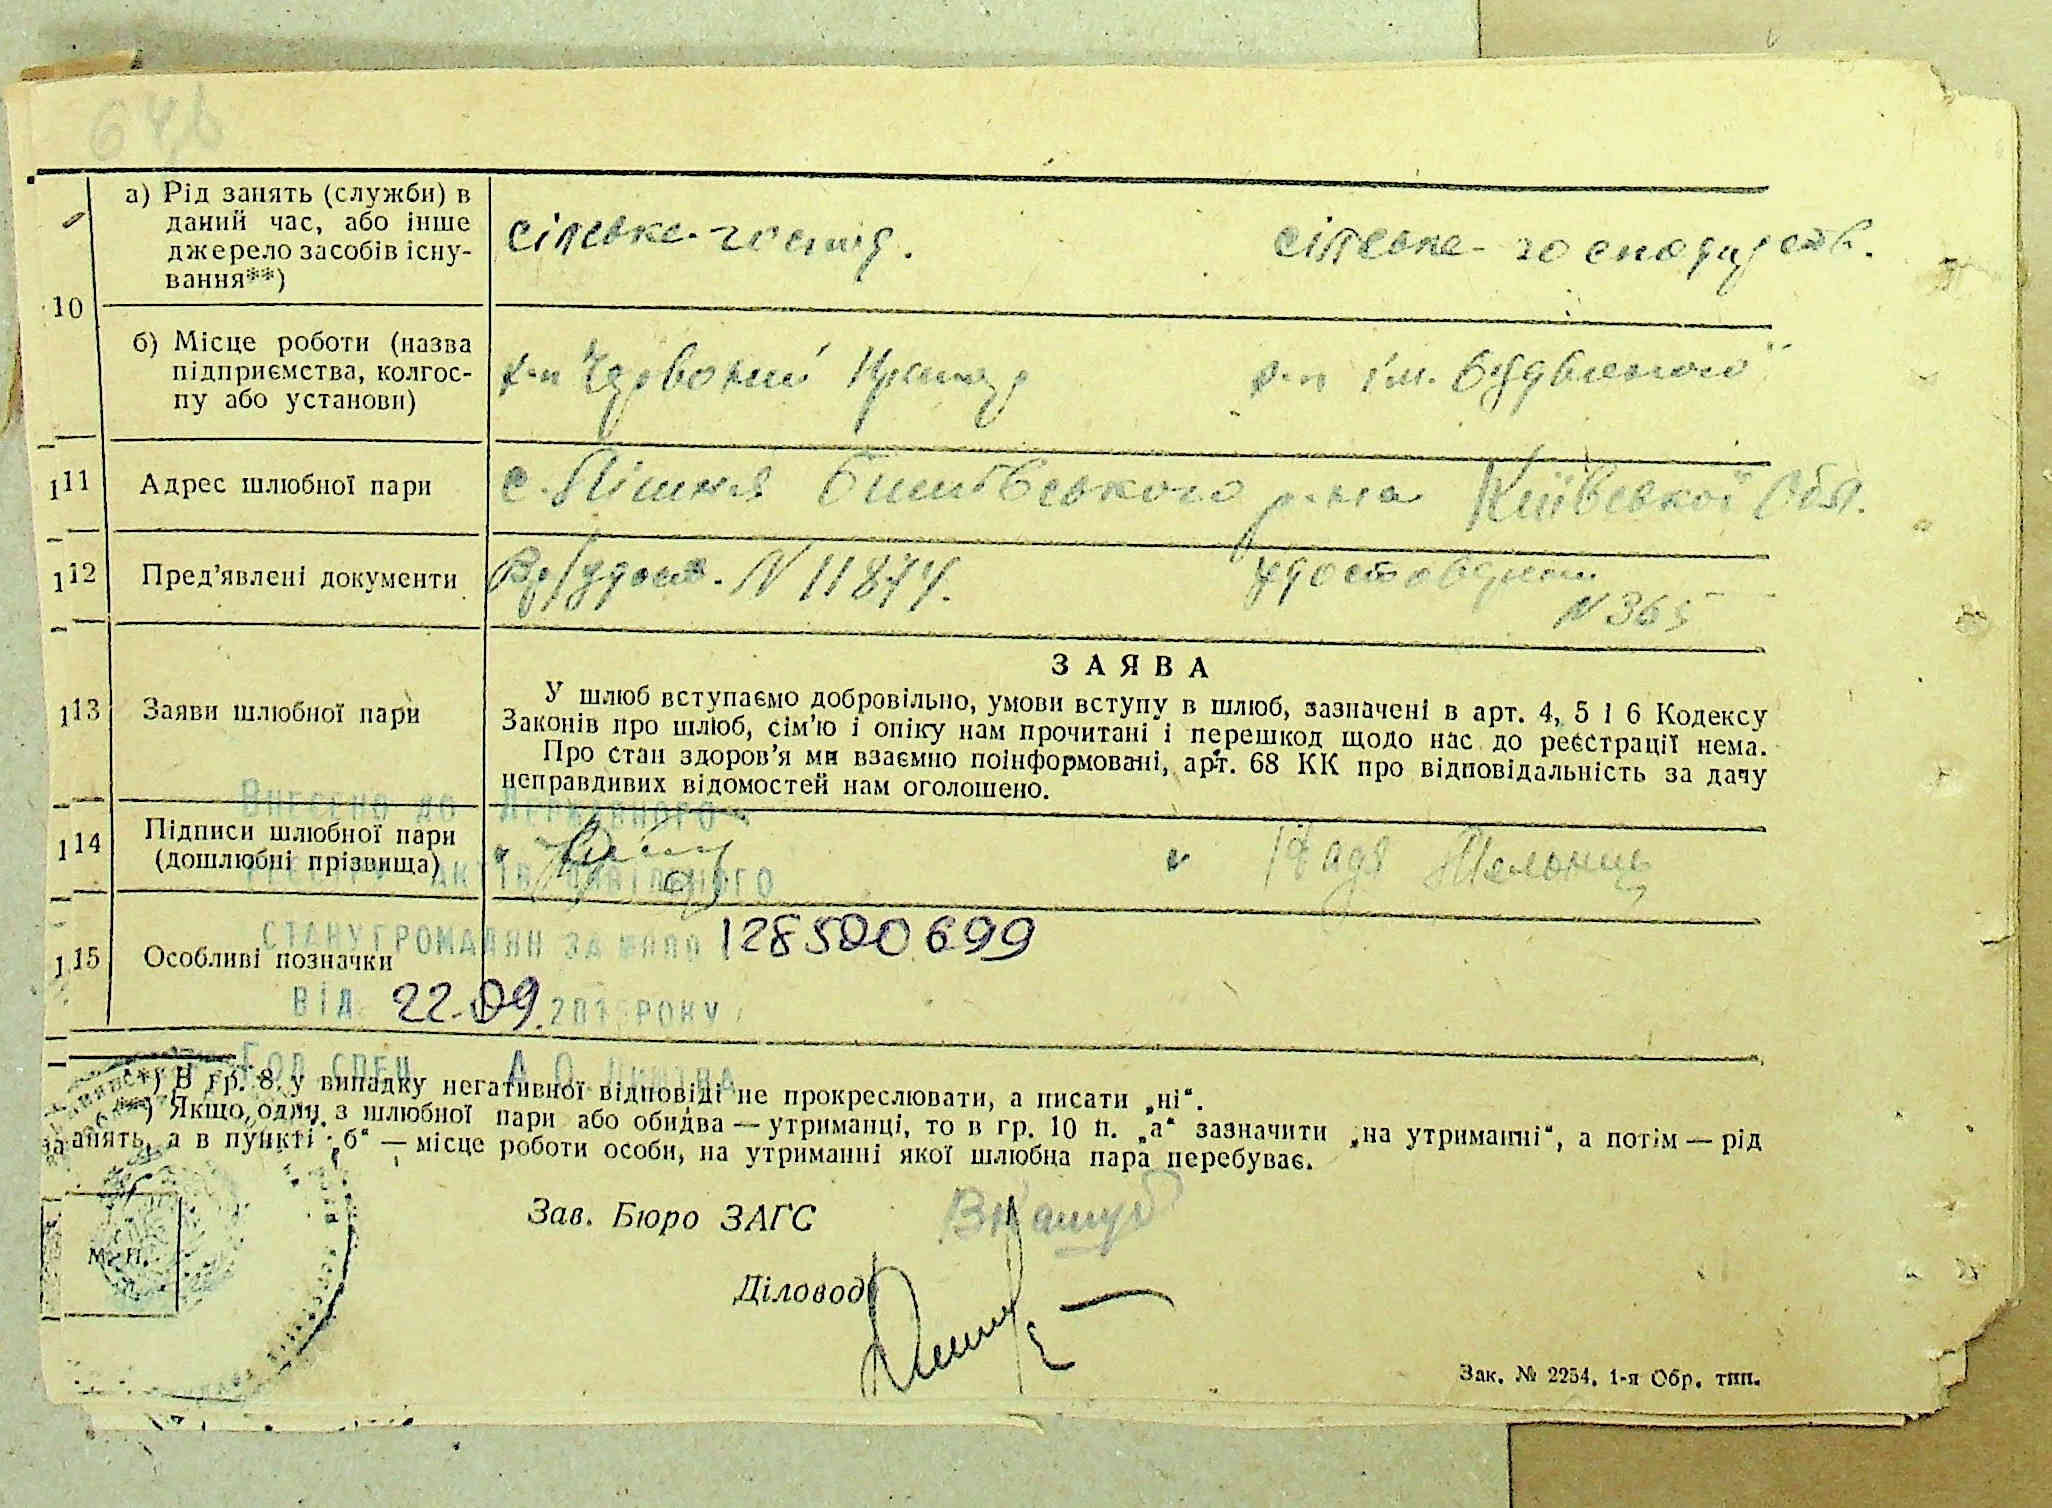 64,б
а) Рід занять (служби) в
даний час, або інше
джерело засобів існу-
вання**)
сільське-госпд.
сільське-господарств.
10
б) Місце роботи (назва
підприємства, колгос-
пу або установи)
к-п Червоний
к-п ім. Будьоного
11
Адрес шлюбної пари
с. Пішня р-на Київської Обл.
12
Пред'явлені документи
N 11874.
N 365
ЗАЯВА
13
Заяви шлюбної пари
У шлюб вступаємо добровільно, умови вступу в шлюб, зазначені в арт. 4, 5 і 6 Кодексу
Законів про шлюб, сім'ю і опіку нам прочитані і перешкод щодо нас до реєстрації нема.
Про стан здоров'я ми взаємно поінформовані, арт. 68 КК про відповідальність за дачу
неправдивих відомостей нам оголошено.
Внесено до Державного
14
Підписи шлюбної пари
(дошлюбні прізвища)
Надя
реєстру актів цивільного
стану громадян за №
128500699
15
Особливі позначки
від 22.09. 201 року
Гол. спец. А.О.
*) В гр. 8 у випадку негативної відповіді не прокреслювати, а писати „ні“.
**) Якщо один з шлюбної пари або обидва — утриманці, то в гр. 10 п. „а“ зазначити „на утриманні“, а потім — рід
занять, а в пункті „б“ — місце роботи особи, на утриманні якої шлюбна пара перебуває.
Зав. Бюро ЗАГС
М. П.
Діловод
Зак. № 2254. 1-я Обр. тип.